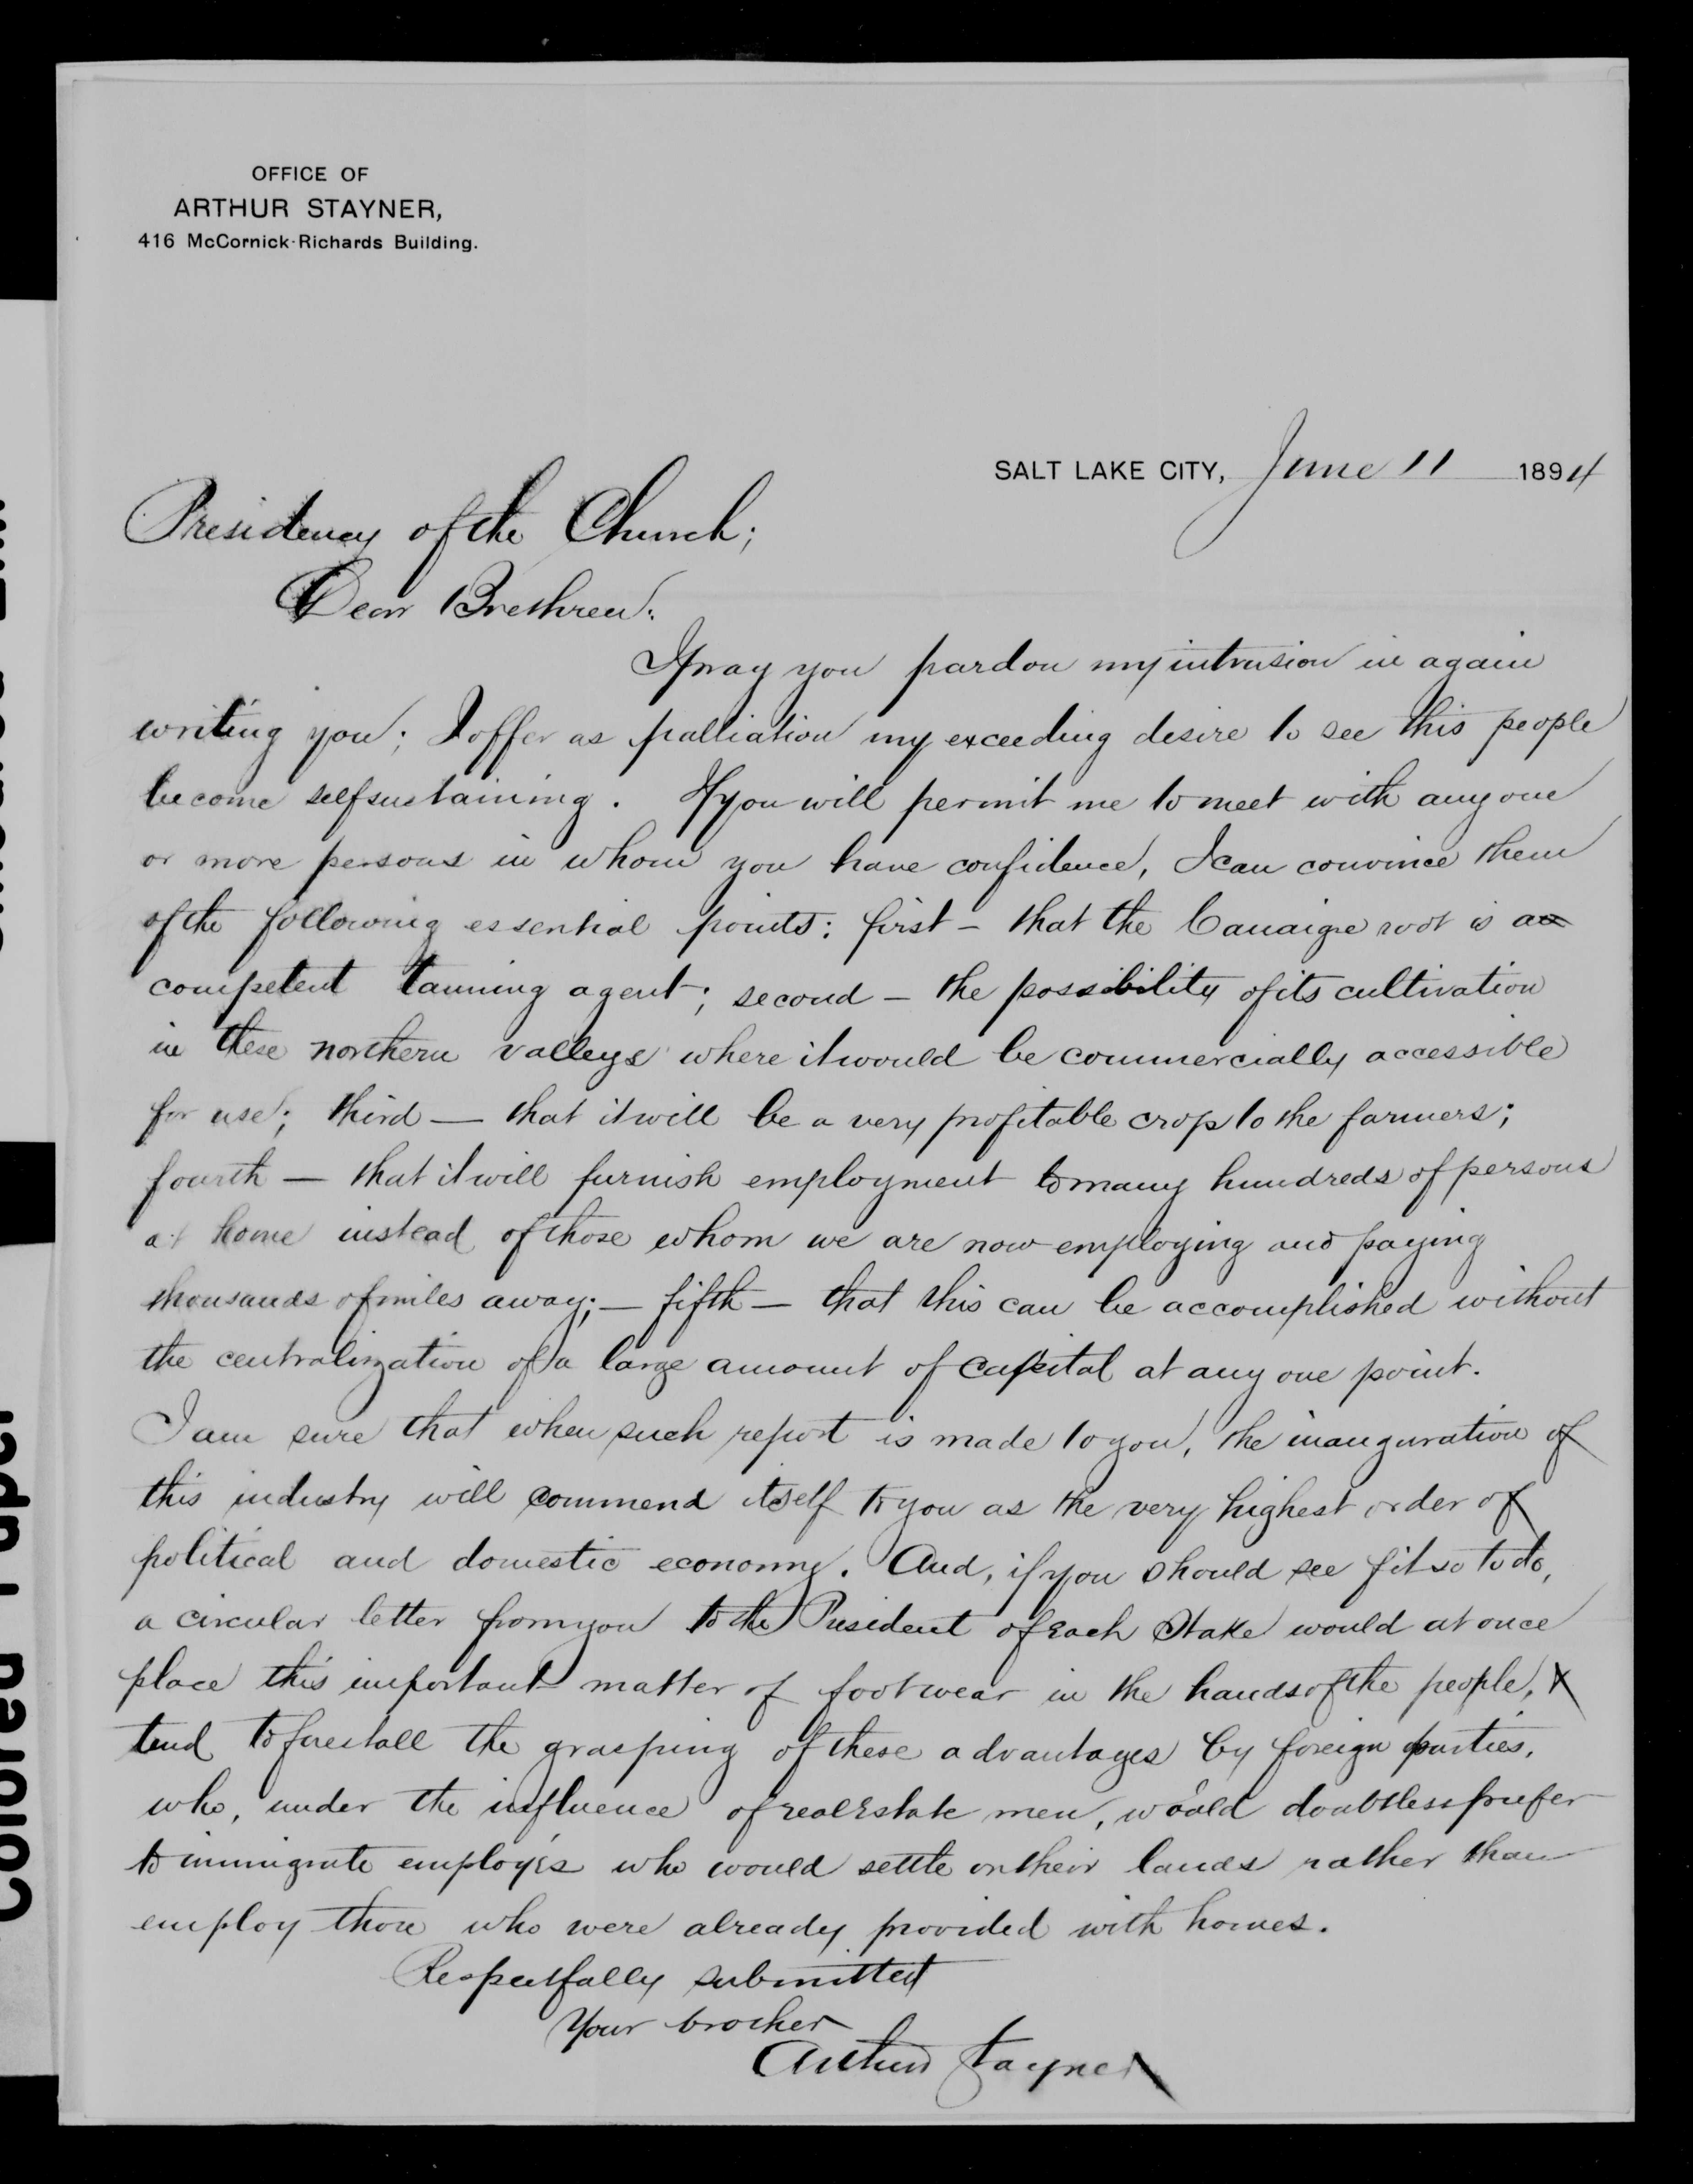 OFFICE OF
ARTHUR STAYNER,
416 McCornick-Richards Building.
SALT LAKE CITY, June 11 1894
Presidency of the Church;
Dear Brethren:
I pray you pardon my intrusion in again
writing you; I offer as palliation my exceeding desire to see this people
become selfsustaining. If you will permit me to meet with any one
or more persons in whom you have confidence, I can convince them
of the following essential points: first – that the Canaigre root is a
competent tanning agent; second – the possibility of its cultivation
in these northern valleys where it would be commercially accessible
for use; third — that it will be a very profitable crop to the farmers;
fourth — that it will furnish employment to many hundreds of persons
at home instead of those whom we are now employing and paying
thousands of miles away; — fifth — that this can be accomplished without
the centralization of a large amount of capital at any one point.
I am sure that when such report is made to you, the inauguration of
this industry will commend itself to you as the very highest order of
political and domestic economy. And, if you should see fit so to do,
a circular letter from you to the President of each Stake would at once
place this important matter of footwear in the hands of the people, &
tend to forestall the grasping of these advantages by foreign parties,
who, under the influence of real estate men, would doubtless prefer
to immigrate employés who would settle on their lands rather than
employ those who were already provided with homes.
Respectfully submitted
Your brother
Arthur Stayner